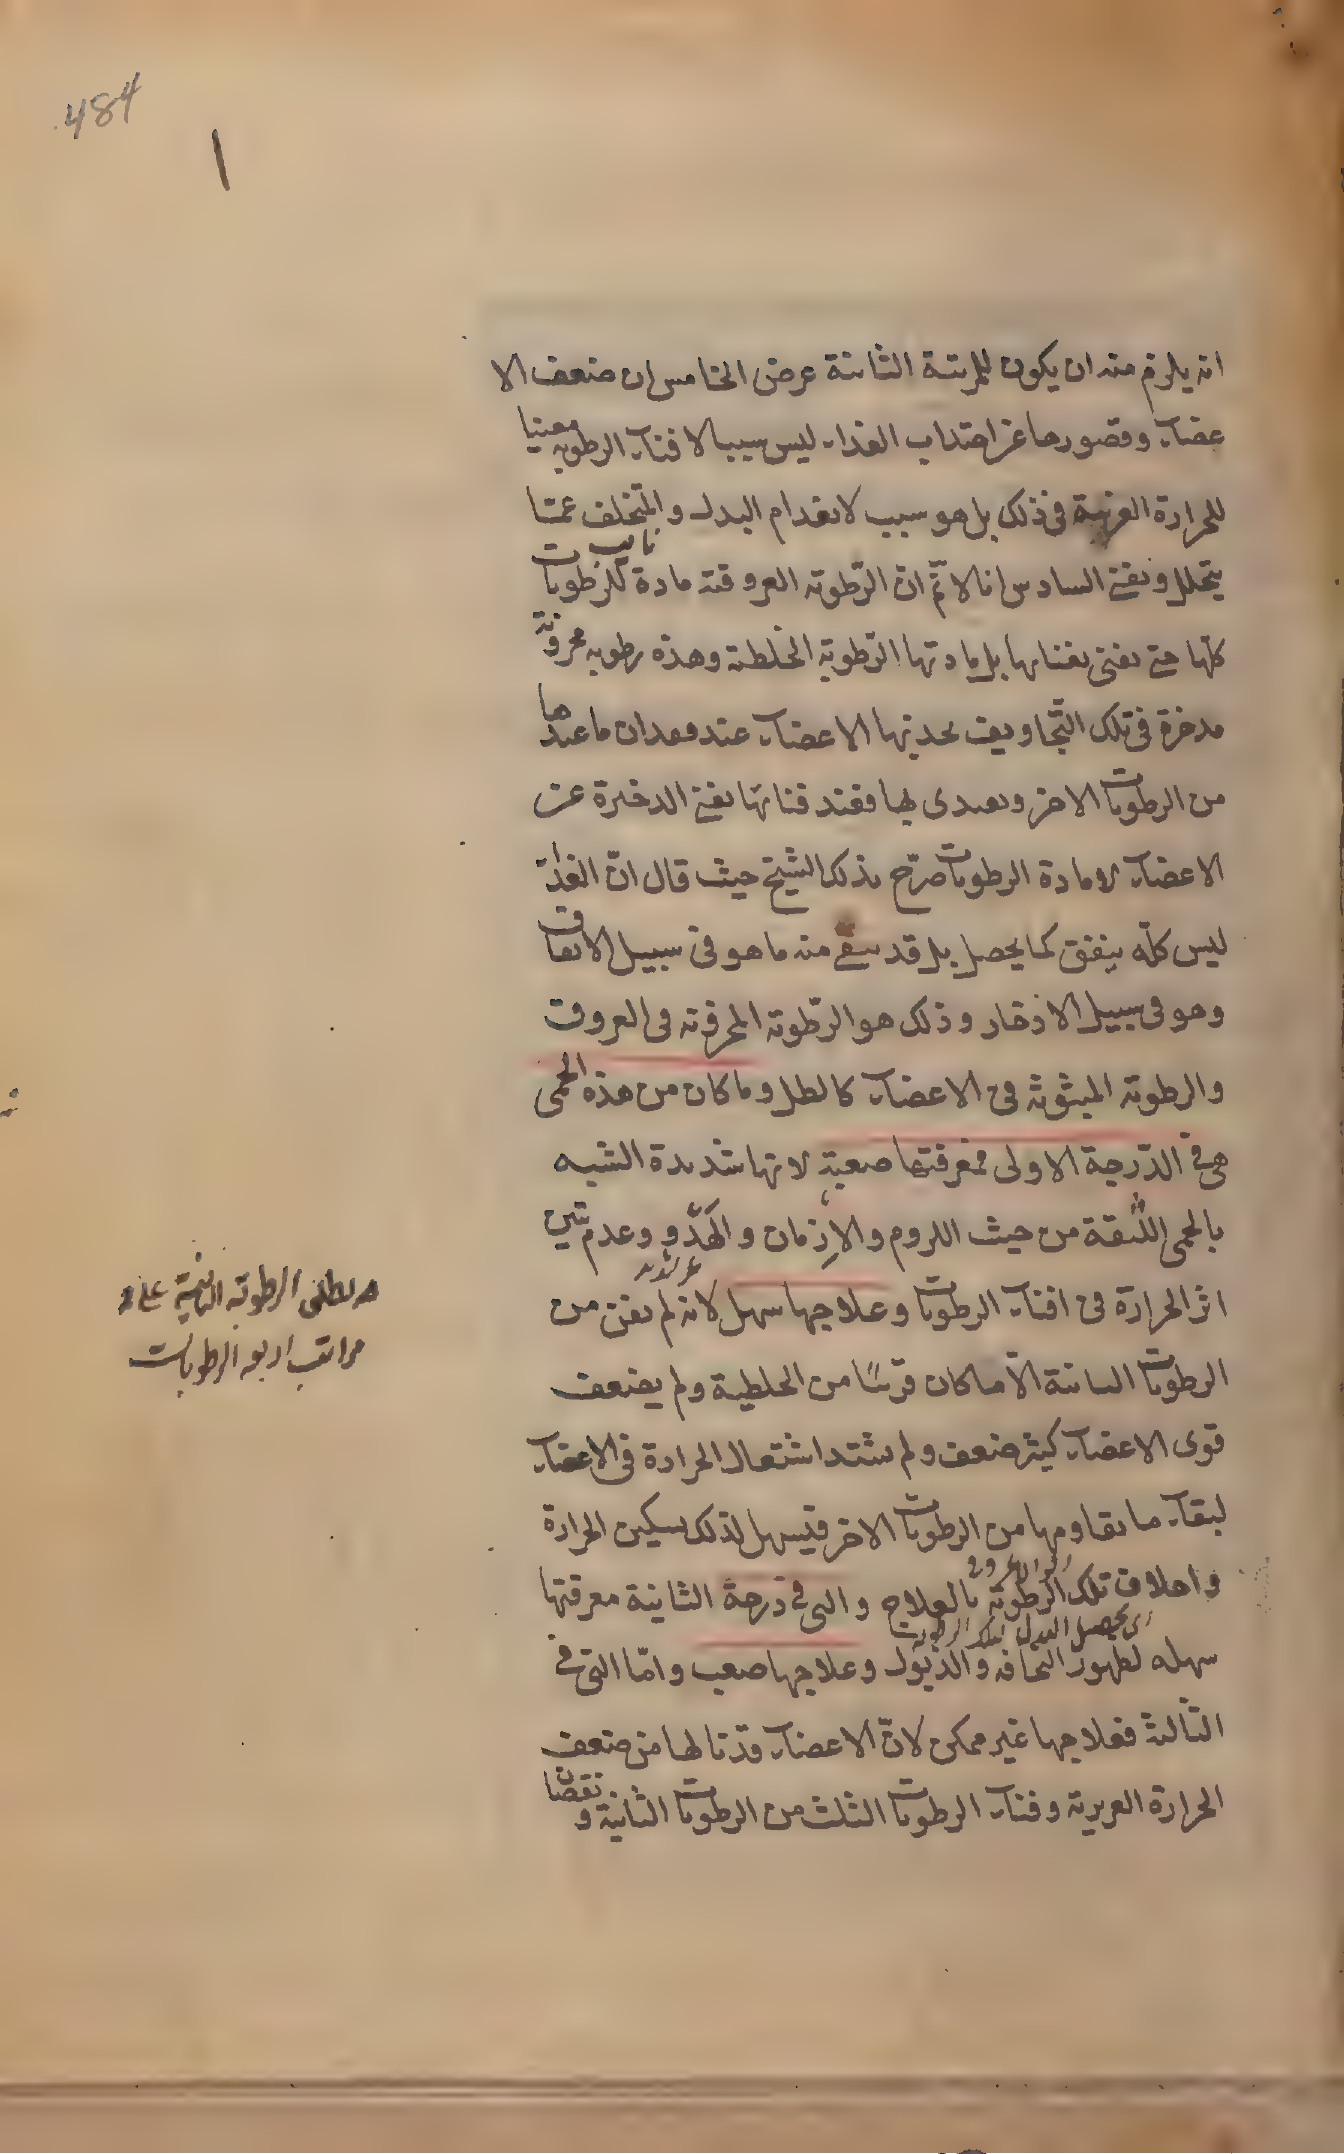 484
انه يلزم منه ان يكون للمرتبة الثانية عرض الخامس ان ضعف الا
عضاء وقصورها عن اجتذاب الغذاء ليس سببا لافناء الرطوبة معينا
للحرارة الغريبة فى ذلك بل هو سبب لانعدام البدل والمتخلف عمّا
يتحلل ويفنى السادس انا لا نمّ انّ الرّطوبة العروقية مادة للرطوبات
كلّها حتى يفنى بفنائها بل مادتها الرّطوبة الخلطية وهذه رطوبة محزونة
مدخرة فى تلك التّجاويف يجذبها الاعضاء عند فقدان ما عندها
من الرطوبات الاخر ويغتذى بها فعند فنائها يفنى الذخيرة عن
الاعضاء لا مادة الرطوبات صرّح بذلك الشيخ حيث قال انّ الغذاء
ليس كلّه ينفق كما يحصل بل قد يبقى منه ما هو فى سبيل الانفاق
وهو فى سبيل الاذخار وذلك هو الرّطوبة المخزونة فى العروق
والرطوبة المبثوثة فى الاعضاء كالطل وما كان من هذه الحمى
هى فى الدّرجة الاولى فمعرفتها صعبة لانها شديدة الشبه
بالحمى اللّثقة من حيث اللزوم والازمان والهدّو وعدم تبين
اثر الحرارة فى افناء الرطوبات وعلاجها سهل لانه لم يفن من
الرطوبات الثانية الّا ما كان قريبًا من الخلطية ولم يضعف
قوى الاعضاء كثير ضعف ولم يشتد اشتعال الحرارة فى الاعضاء
لبقاء ما يقاومها من الرطوبات الاخر فيسهل لذلك تسكين الحرارة
واخلاف تلك الرطوبة بالعلاج والتى فى درجة الثانية معرفتها
اى تحصيل البدل لتلك الرطوبات
سهله لظهور النحافة والذبول وعلاجها صعب وامّا التى فى
الثالثة فعلاجها غير ممكن لانّ الاعضاء قد نالها من ضعف
الحرارة الغريزية وفناء الرطوبات الثلث من الرطوبات الثانية ونقصان
يطلق الرطوبة الثانية على
مراتب اربعه الرطوبات